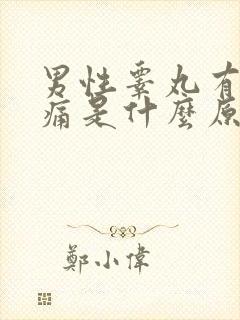 男性睾丸有
痛是什麼原
鄭小偉